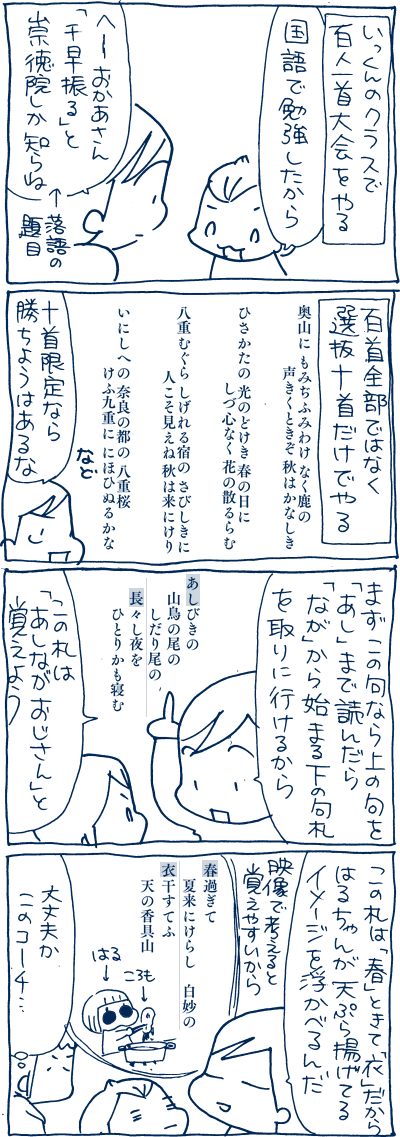 いっくんのクラスで
百人一首大会をやる
国語で勉強したから
へーおかあさん
「千早振る」と
崇徳院しか知らね
↑落語の
題目
百首全部ではなく
選抜十首だけでやる
奥山に もみぢふみわけ なく鹿の
声きくときぞ 秋はかなしき
ひさかたの 光のどけき 春の日に
しづ心なく 花の散るらむ
八重むぐら しげれる宿の さびしきに
人こそ見えね 秋は来にけり
いにしへの 奈良の都の 八重桜
けふ九重に にほひぬるかな
など
十首限定なら
勝ちようはあるな
まずこの句なら上の句を
「あし」まで読んだら
「なが」から始まる下の句札
を取りに行けるから
あしびきの
山鳥の尾の
しだり尾の
長々し夜を
ひとりかも寝む
この札は
「あしながおじさん」と
覚えよう
この札は「春」ときて「衣」だから
はるちゃんが天ぷら揚げてる
イメージを浮かべるんだ
映像で考えると
覚えやすいから
春過ぎて
夏来にけらし 白妙の
衣干すてふ
天の香具山
ころも
はる
大丈夫か
このコーチ…